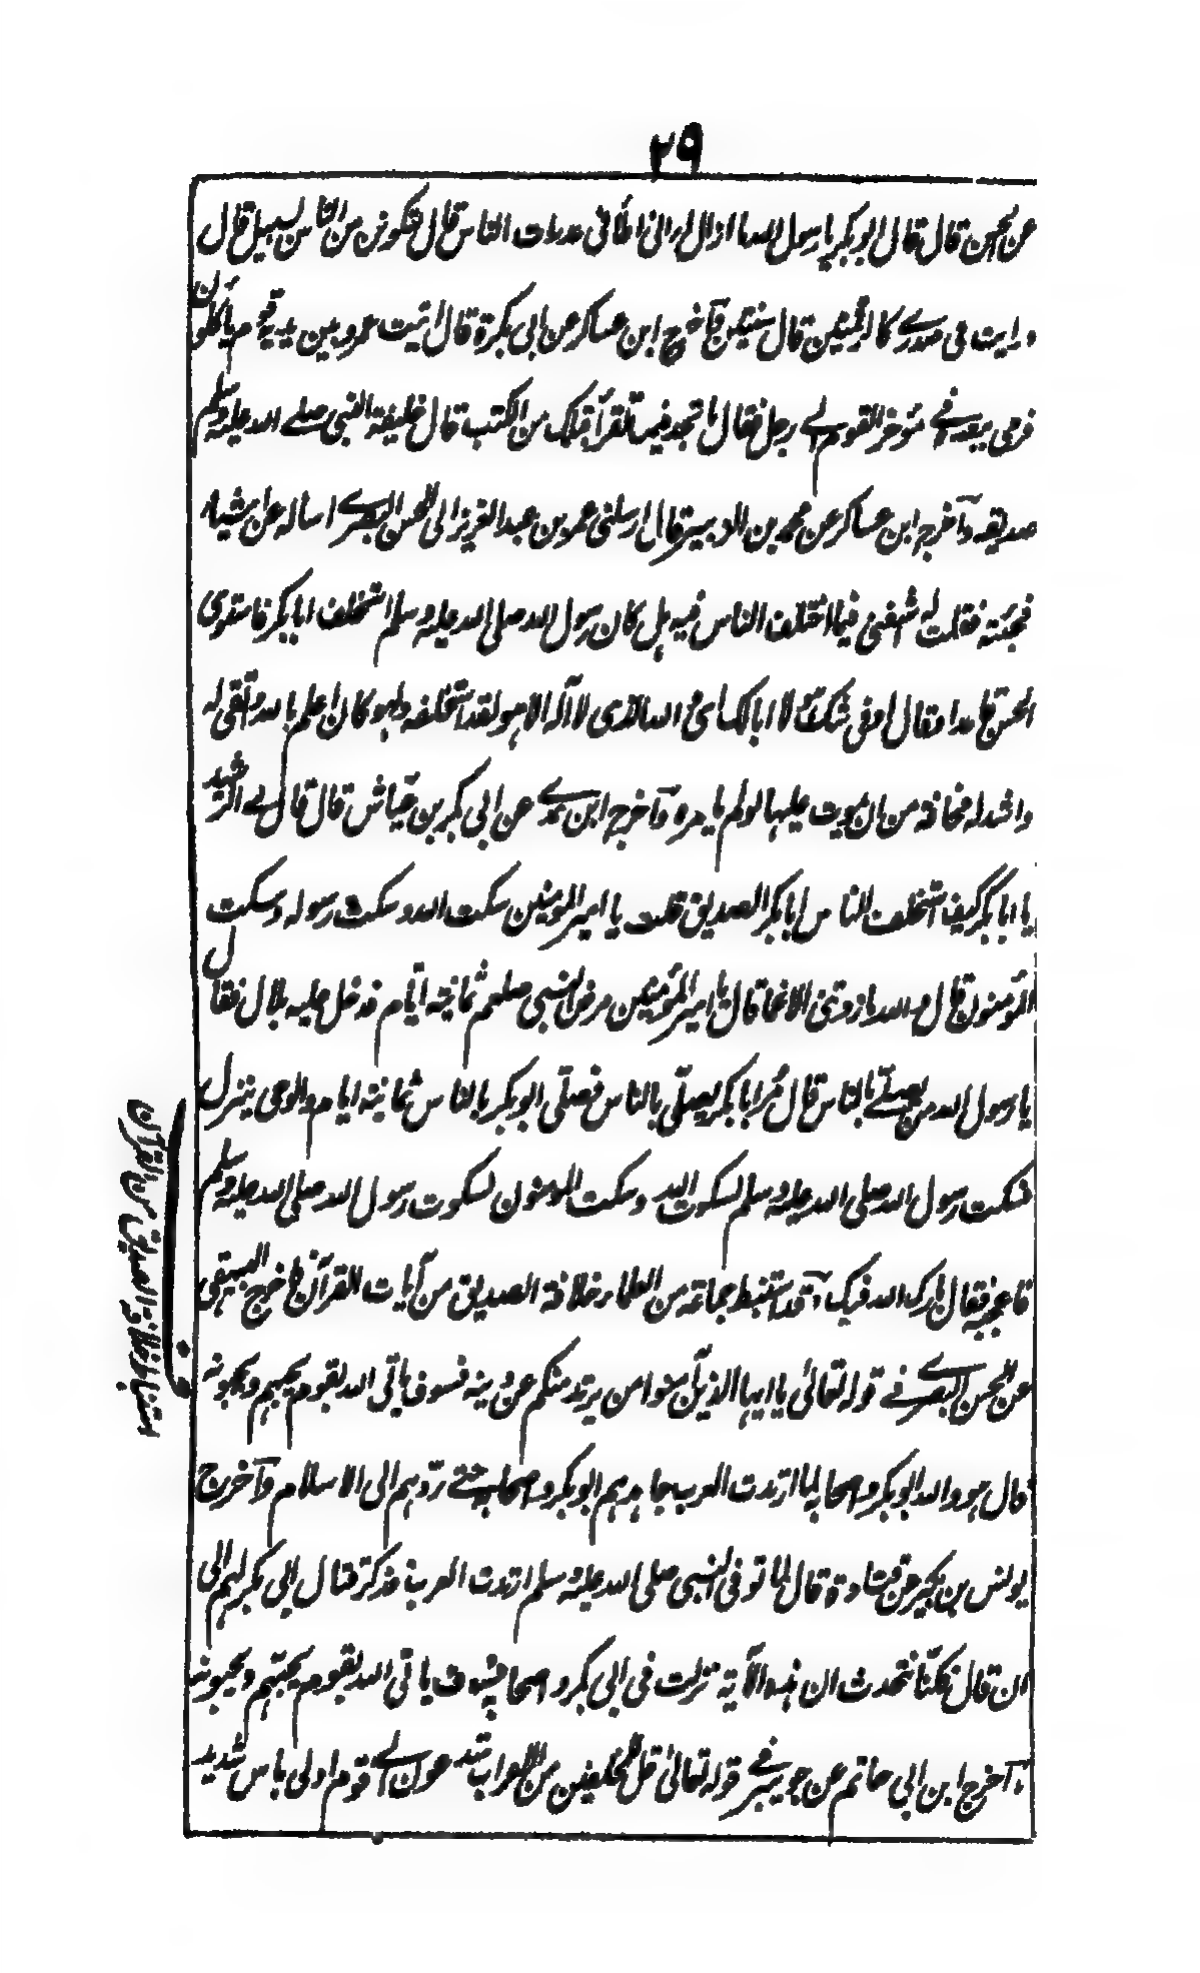 ٢٩
عن الحسن قال قال ابو بكر يا رسول الله ما ازال ارانى اطأ فى عذرات الناس قال لتكونن من الناس بسبيل قال
ورايت فى صدرى كالرقمتين قال سنتين وآخرج ابن عساكر عن ابى بكرة قال اتيت عمر وبين يديه قوم ياكلون
فرمى ببصره فى مؤخر القوم الى رجل فقال ما تجد فيما تقرأ قبلك من الكتب قال خليفة النبى صلى الله عليه وسلم
صديقه وآخرج ابن عساكر عن محمد بن الزبير قال ارسلنى عمر بن عبد العزيز الى الحسن البصرى اساله عن اشياء
فجئته فقلت له اشفنى فيما اختلف الناس فيه هل كان رسول الله صلى الله عليه وسلم استخلف ابا بكر فاستوى
الحسن قاعدا فقال اوفى شك هو لا ابا لك اى والله الذى لا اله الا هو لقد استخلفه ولهو كان اعلم بالله واتقى له
واشد له مخافة من ان يموت عليها لو لم يامره وآخرج ابن عدى عن ابى بكر بن عياش قال قال لى الرشيد
يا ابا بكر كيف استخلف الناس ابا بكر الصديق قلت يا امير المؤمنين سكت الله وسكت رسوله وسكت
المؤمنون قال والله ما زدتنى الا غما قال يا امير المؤمنين مرض النبى صلعم ثمانية ايام فدخل عليه بلال فقال
يا رسول الله من يصلى بالناس قال مر ابا بكر يصلى بالناس فصلى ابو بكر بالناس ثمانية ايام والوحى ينزل
فسكت رسول الله صلى الله عليه وسلم لسكوت الله وسكت المؤمنون لسكوت رسول الله صلى الله عليه وسلم
فاعجبه فقال بارك الله فيك وقد استنبط جماعة من العلماء خلافة الصديق من آيات القرآن فاخرج البيهقى
عن الحسن البصرى فى قوله تعالى يا ايها الذين آمنوا من يرتد منكم عن دينه فسوف ياتى الله بقوم يحبهم ويحبونه
قال هو والله ابو بكر واصحابه لما ارتدت العرب جاهدهم ابو بكر واصحابه حتى ردهم الى الاسلام وآخرج
يونس بن بكير عن قتادة قال لما توفى النبى صلى الله عليه وسلم ارتدت العرب فذكر قتال ابى بكر لهم الى
ان قال فكنا نتحدث ان هذه الآية نزلت فى ابى بكر واصحابه فسوف ياتى الله بقوم يحبهم ويحبونه
وآخرج ابن ابى حاتم عن جويبر فى قوله تعالى قل للمخلفين من الاعراب ستدعون الى قوم اولى باس شديد
استنباط خلافة الصديق من القرآن